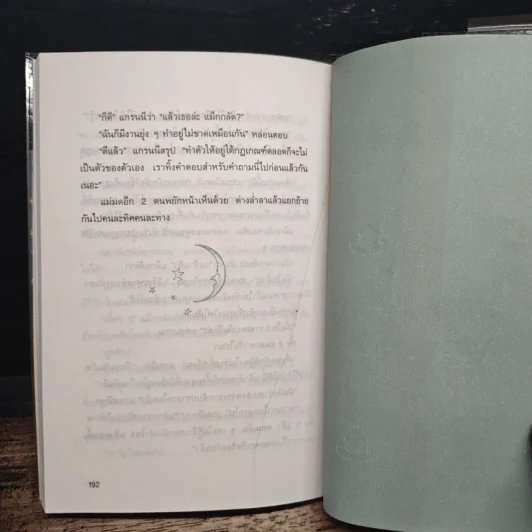 "ก็ดี" แกรนนีว่า "แล้วเธอล่ะ แม็กกลัด?"
"ฉันก็มีงานยุ่ง ๆ ทำอยู่ไม่ขาดเหมือนกัน" หล่อนตอบ
"ดีแล้ว" แกรนนีสรุป "ทำตัวให้อยู่ใต้กฎเกณฑ์ตลอดก็จะไม่
เป็นตัวของตัวเอง เราทิ้งคำตอบสำหรับคำถามนี้ไปก่อนแล้วกัน
เนอะ"
แม่มดอีก 2 ตนพยักหน้าเห็นด้วย ต่างล่ำลาแล้วแยกย้าย
กันไปคนละทิศคนละทาง
192